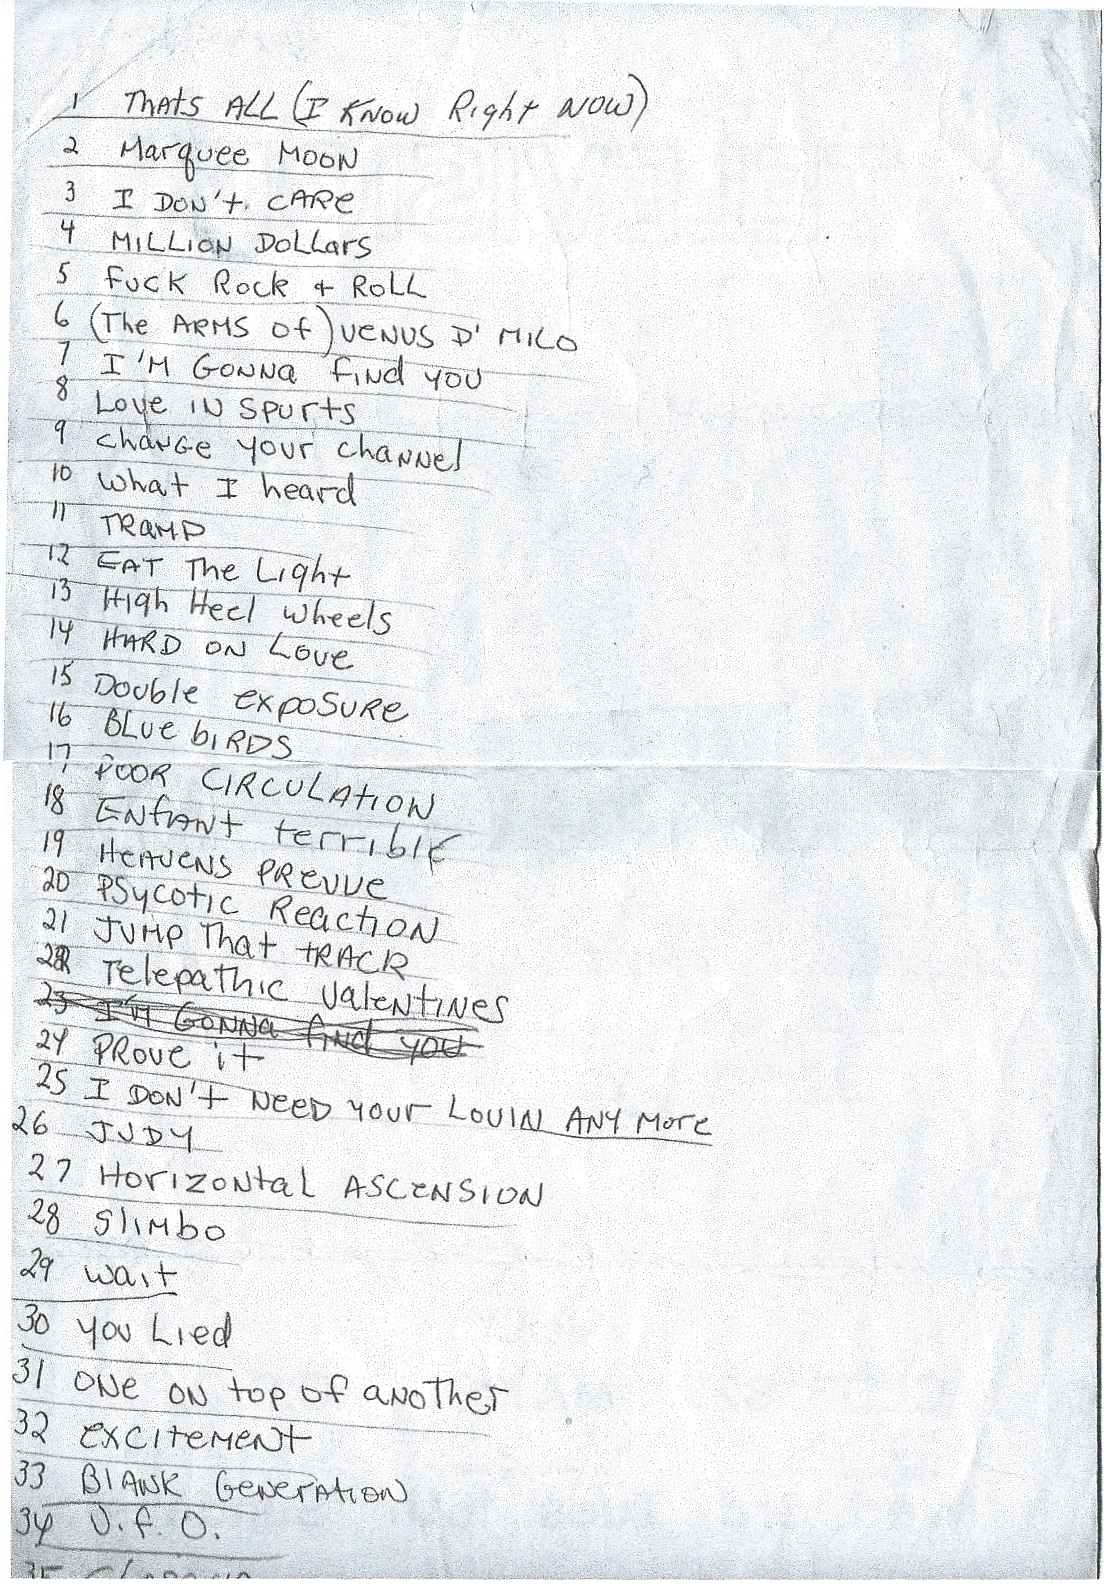 1 THATS ALL (I KNOW Right NOW)
2 Marquee MOON
3 I DON't CARe
4 MILLION DOLLars
5 FUCK Rock + ROLL
6 (The ARMS Of) VENUS D' MILO
7 I'M GONNa fINd YOU
8 Love IN Spurts
9 chaNGe your chaNNel
10 what I heard
11 TRaMP
12 EAT The LIght
13 HIgh Heel wheels
14 HARD ON Love
15 DOUble exPOSURe
16 BLUe bIRDS
17 POOR CIRCULAtION
18 ENfANt terrible
19 HeAVeNS PREVUe
20 PSycotic ReactION
21 JUMP That tRACK
22 Telepathic ValeNtINes
23 I'M GONNa fINd YOU
24 PROVe it
25 I DON't NeeD your LOVIN ANY MOre
26 JUDY
27 HOrIZONtal ASCeNSION
28 SlIMbo
29 waIt
30 YOU LIed
31 ONe ON top of aNOTher
32 exCIteMeNt
33 BlANK GeNeratION
34 U.f.O.
35